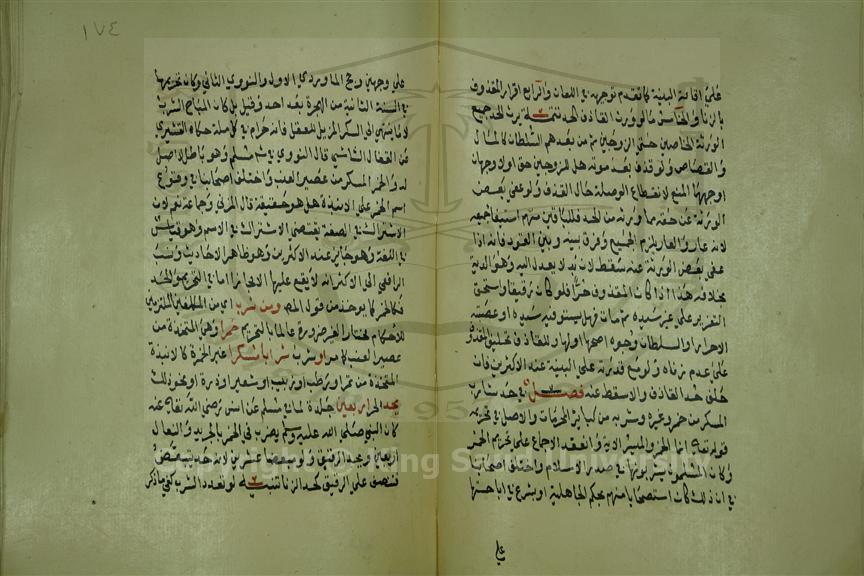 ١٧٤
على اقامة البينة كما تقدم توجيهه في اللعان والرابع اقرار المقذوف
بالزنا والخامس ما لو ورث القاذف الحد تتمة يرث الحد جميع
الورثة الخاصين حتى الزوجين ثم من بعدهم السلطان كالمال
والقصاص ولو قذف بعد موته هل للزوجين حق اولا وجهان
اوجههما المنع لانقطاع الوصلة حال القذف ولو عفى بعض
الورثة عن حقه مما ورثه من الحد فللباقين منهم استيفا جميعه
لانه عار والعار يلزم الجميع وفرق بينه وبين القود فانه اذا
عفى بعض الورثة عنه سقط لان له بدلا يعدل اليه وهو الدية
بخلافه هذا اذا كان المقذوف حرا فلو كان رقيقا واستحق
التعزير على غير سيده ثم مات فهل يستوفيه سيده او عصبته
الاحرار او السلطان وجوه اصحها اولها وللقاذف تحليف المقذوف
على عدم زناه ولو مع قدرته على البينة عند الاكثرين فان
حلف حد القاذف والا سقط عنه فصل في حد شارب
المسكر من خمر وغيره وشربه من كباير المحرمات والاصل في تحريمه
قوله تعالى انما الخمر والميسر الاية وانعقد الاجماع على تحريم الخمر
وكان المسلمون يشربونها في صدر الاسلام واختلف اصحابنا
في ان ذلك كان استصحابا منهم بحكم الجاهلية او بشرع في اباحتها
على
على وجهين رجح الماوردي الاول والنووي الثاني وكان تحريمها
في السنة الثانية من الهجرة بعد احد وقيل بل كان المباح الشرب
لا ما ينتهي الى السكر المزيل للعقل فانه حرام في كل ملة حكاه القشيري
عن القفال الشاشي قال النووي في شرح مسلم وهو باطل لا اصل
له والخمر المسكر من عصير العنب واختلف اصحابنا في وقوع
اسم الخمر على الانبذة هل هو حقيقة قال المزني وجماعة نعم لان
الاشتراك في الصفة يقتضي الاشتراك في الاسم وهو قياس
في اللغة وهو جايز عند الاكثرين وهو ظاهر الاحاديث ونسب
الرافعي الى الاكثر انه لا يقع عليها الا مجازا اما في التحريم والحد
فكالخمر كما يوخذ من قول المص ومن شرب اي من المكلفين الملتزمين
للاحكام مختارا لغير ضرورة عالما بالتحريم خمرا وهي المتخذة من
عصير العنب كما مر او شرب شرابا مسكرا غير الخمرة كالانبذة
المتخذة من تمر او رطب او زبيب او شعير او ذرة او نحو ذلك
يحد الحر اربعين جلدة لما في مسلم عن انس رضي الله تعالى عنه
كان النبي صلى الله عليه وسلم يضرب في الخمر بالجريد والنعال
اربعين ويحد الرقيق ولو مبعضا عشرين لانه حد يتبعض
فتنصف على الرقيق كحد الزنا تنبيه لو تعدد الشرب كفى ما ذكر
Copyright © King Saud University